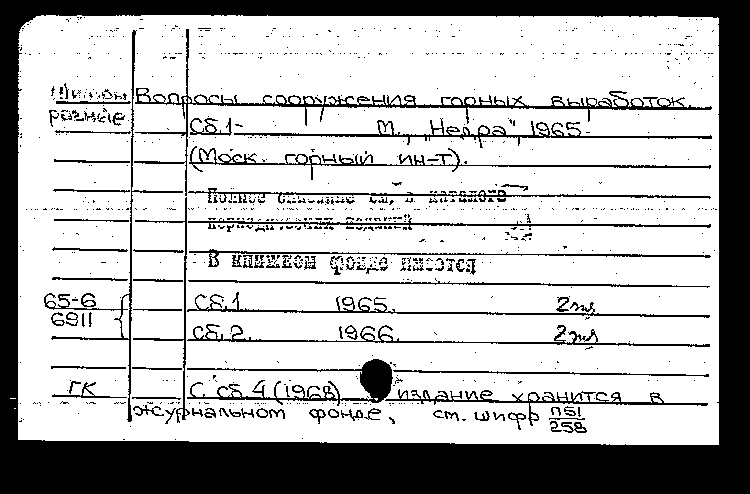 Шифры Вопросы сооружения горных выработок.
разные Сб.1- М., „Недра", 1965-
(Моск. горный ин-т).
Полное описание см. в каталоге
периодических изданий
В книжном фонде имеются
65-6 Сб.1. 1965. 2 экз
6911 Сб.2. 1966. 2 экз
ГК С сб. 4 (1968) издание хранится в
журнальном фонде, ст. шифр П51/258